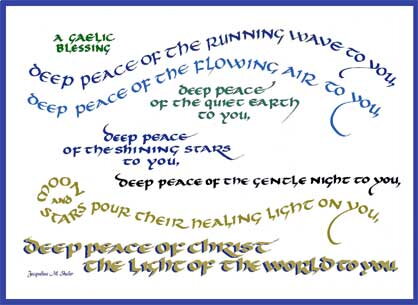 A GAELIC
BLESSING
DEEP PEACE OF THE RUNNING WAVE TO YOU,
DEEP PEACE OF THE FLOWING AIR TO YOU,
DEEP PEACE
OF THE QUIET EARTH
TO YOU,
DEEP PEACE
OF THE SHINING STARS
TO YOU,
DEEP PEACE OF THE GENTLE NIGHT TO YOU,
MOON
AND
STARS POUR THEIR HEALING LIGHT ON YOU,
DEEP PEACE OF CHRIST
THE LIGHT OF THE WORLD TO YOU.